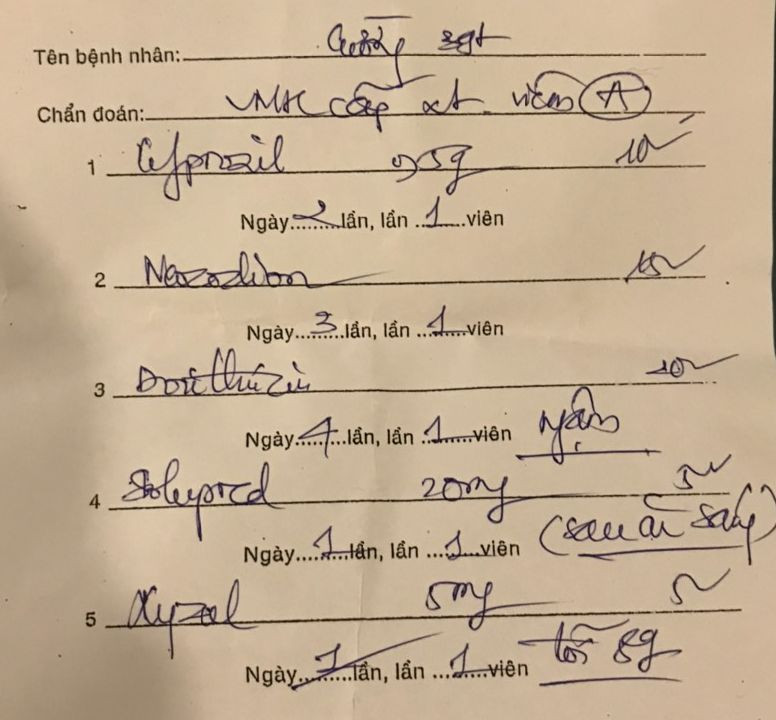 Tên bệnh nhân: Cường sgt
Chẩn đoán: VMX cấp xt viêm (A)
1 Cefprozil 0,5g 10v
Ngày 2 lần, lần 1 viên
2 15v
Ngày 3 lần, lần 1 viên
3 Dorithricin 20v
Ngày 4 lần, lần 1 viên ngậm
4 Solupred 20mg 5v
Ngày 1 lần, lần 1 viên (sau ăn sáng)
5 Xyzal 5mg 5v
Ngày 1 lần, lần 1 viên tối 8g